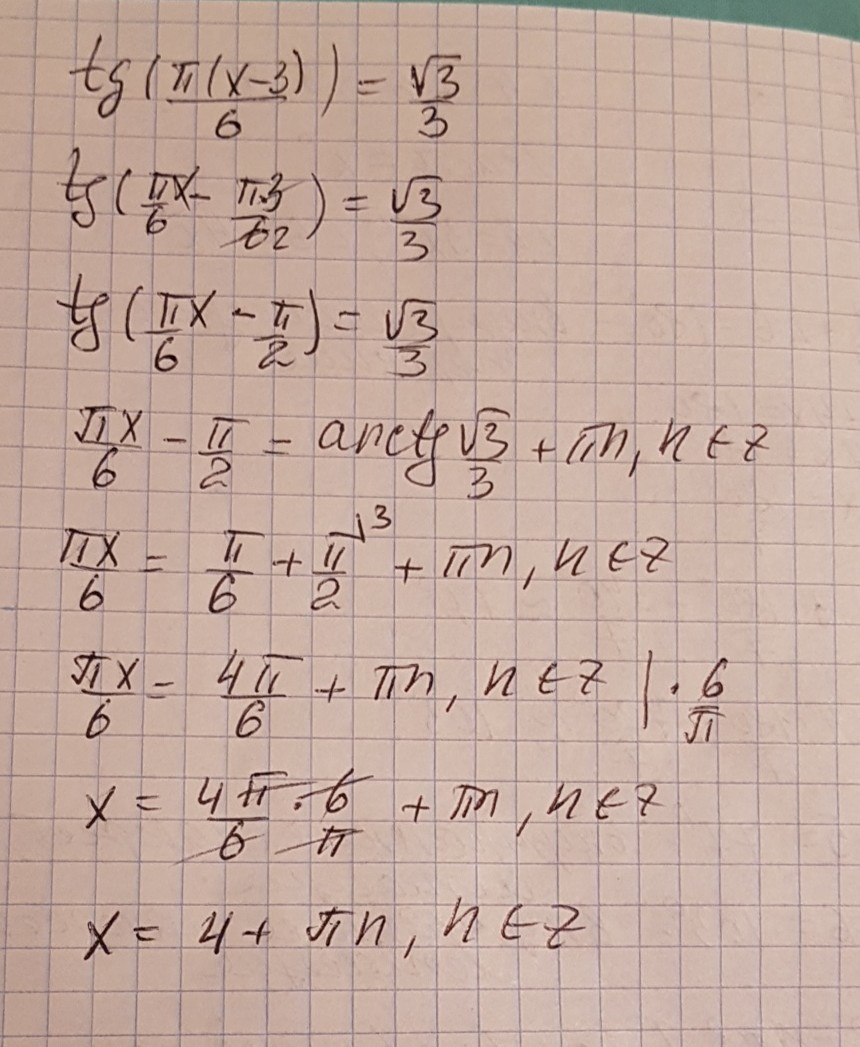 tg(π(x-3)/6) = √3/3
tg(πx/6 - π3/62) = √3/3
tg(πx/6 - π/2) = √3/3
πx/6 - π/2 = arctg √3/3 + πn, n ∈ z
πx/6 = π/6 + π/2 ⌡3 + πn, n ∈ z
πx/6 = 4π/6 + πn, n ∈ z | · 6/π
x = 4π/6 · 6/π + πn, n ∈ z
x = 4 + πn, n ∈ z